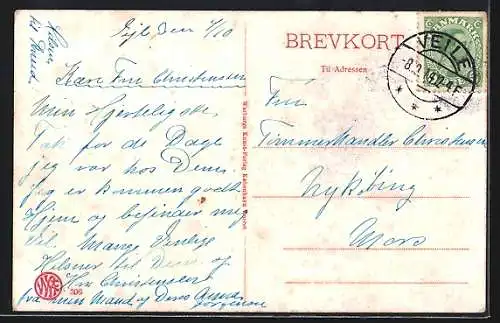 Hilsen
til Svend.
Vejle Den 7/10
Kære Fru Christensen
Min Hjerteligste
Tak for de Dage
jeg var hos Dem.
jeg er kommen godt
Hjem og befinder mig
Vel. Mange Venlige
Hilsner til Dem og
Hr. Christensen
fra min Mand og Deres Anna
Jørgensen
306
Warburgs Kunst-Forlag
BREVKORT
Til Adressen
DANMARK
VEJLE
Fru
Tømmerhandler Christensen
Nykøbing
Mors